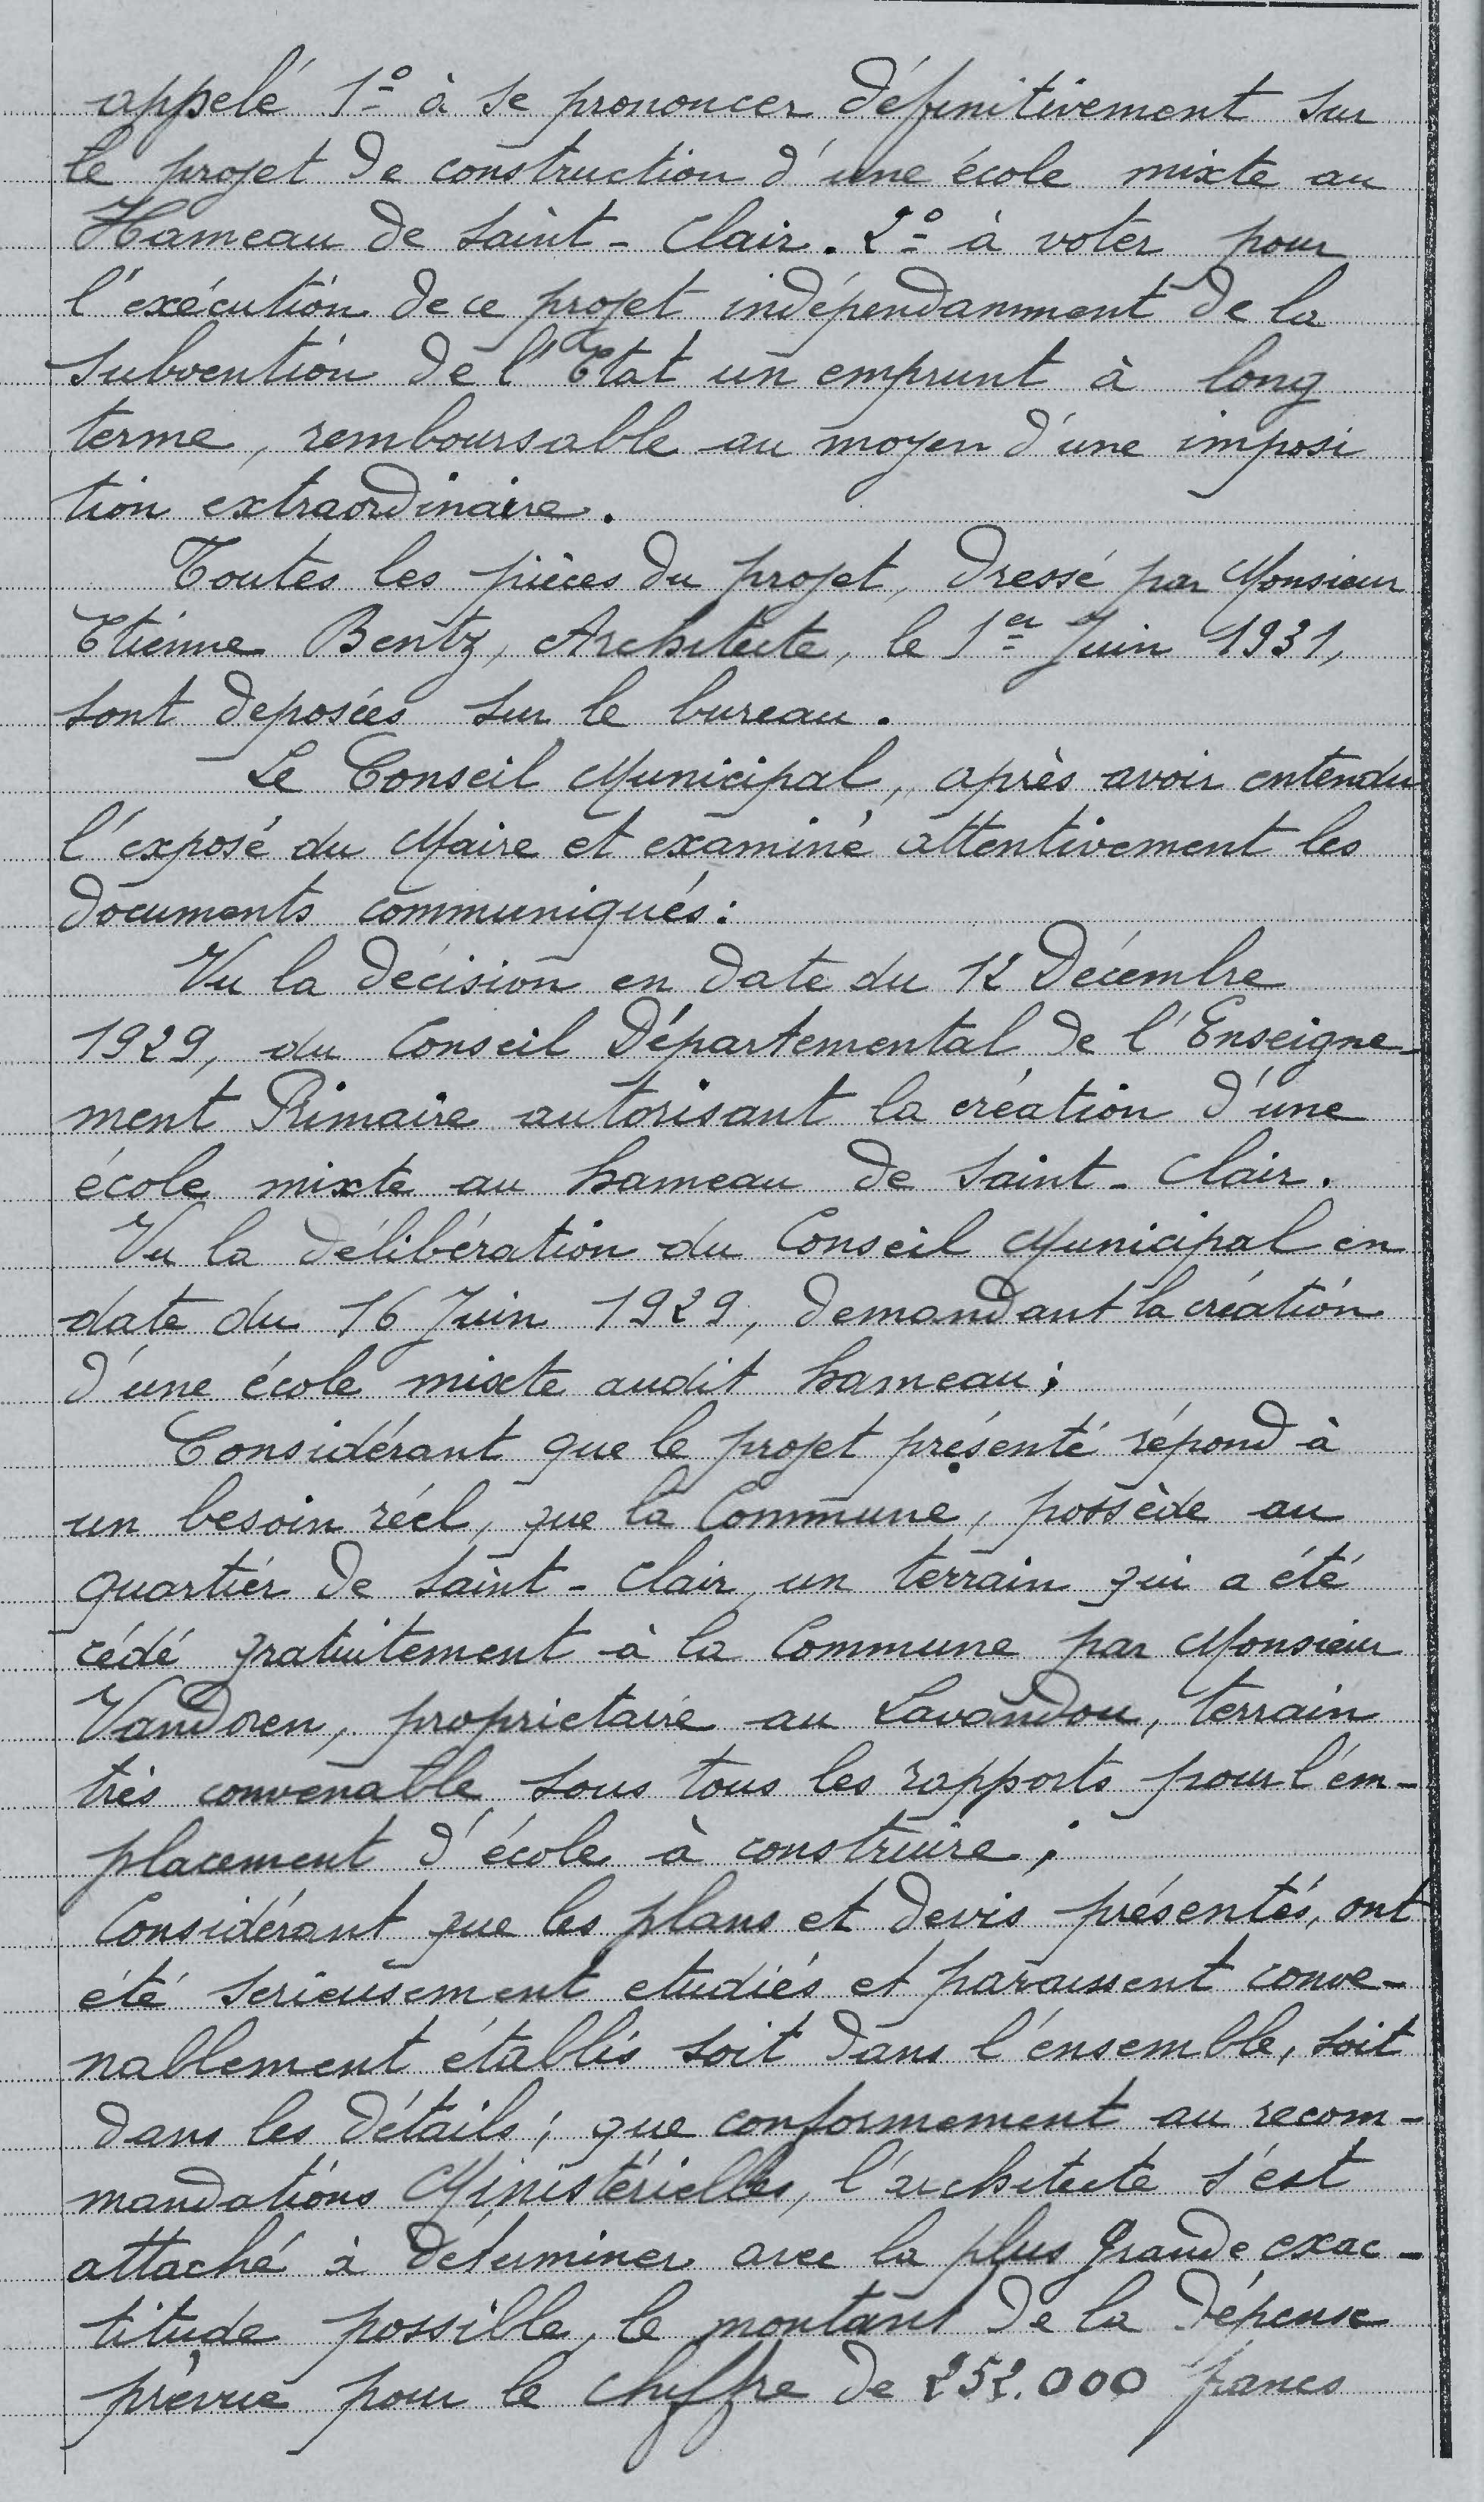 appelé 1º à se prononcer définitivement sur
le projet de construction d'une école mixte au
Hameau de Saint-Clair. 2º à voter pour
l'exécution de ce projet indépendamment de la
subvention de l'Etat un emprunt à long
terme, remboursable au moyen d'une imposi
tion extraordinaire.
Toutes les pièces du projet, dressé par Monsieur
Etienne Bentz, Architecte, le 1er Juin 1931,
sont deposées sur le bureau.
Le Conseil Municipal, après avoir entendu
l'exposé du Maire et examiné attentivement les
documents communiqués:
Vu la décision en date du 12 Décembre
1929, du Conseil Départemental de l'Enseigne-
ment Primaire autorisant la création d'une
école mixte au hameau de Saint-Clair.
Vu la délibération du Conseil Municipal en
date du 16 Juin 1929, demandant la création
d'une école mixte audit hameau;
Considérant que le projet présenté répond à
un besoin réel, que la Commune, possède au
quartier de Saint-Clair, un terrain qui a été
cédé gratuitement à la Commune par Monsieur
Vandoren, proprietaire au Lavandou, terrain
très convenable sous tous les rapports pour l'em-
placement d'école à construire;
Considérant que les plans et devis présentés, ont
été serieusement etudiés et paraissent conve-
nablement établis soit dans l'ensemble, soit
dans les détails; que conformement au recom-
mandations Ministérielles, l'architecte s'est
attaché à déterminer avec la plus grande exac-
titude possible, le montant de la dépense
prévue pour le chiffre de 252.000 francs